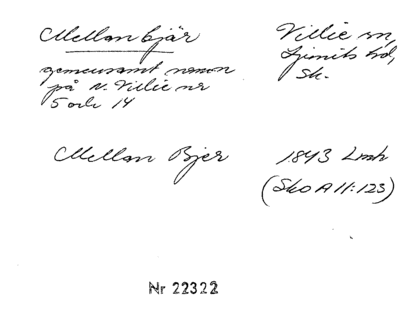 Mellanbjär
Villie sn,
Ljunits hd,
Sk.
gemensamt namn
på N. Villie nr
5 och 14
Mellan Bjer
1843 Lmh
(Sko A11:123)
Nr 22322